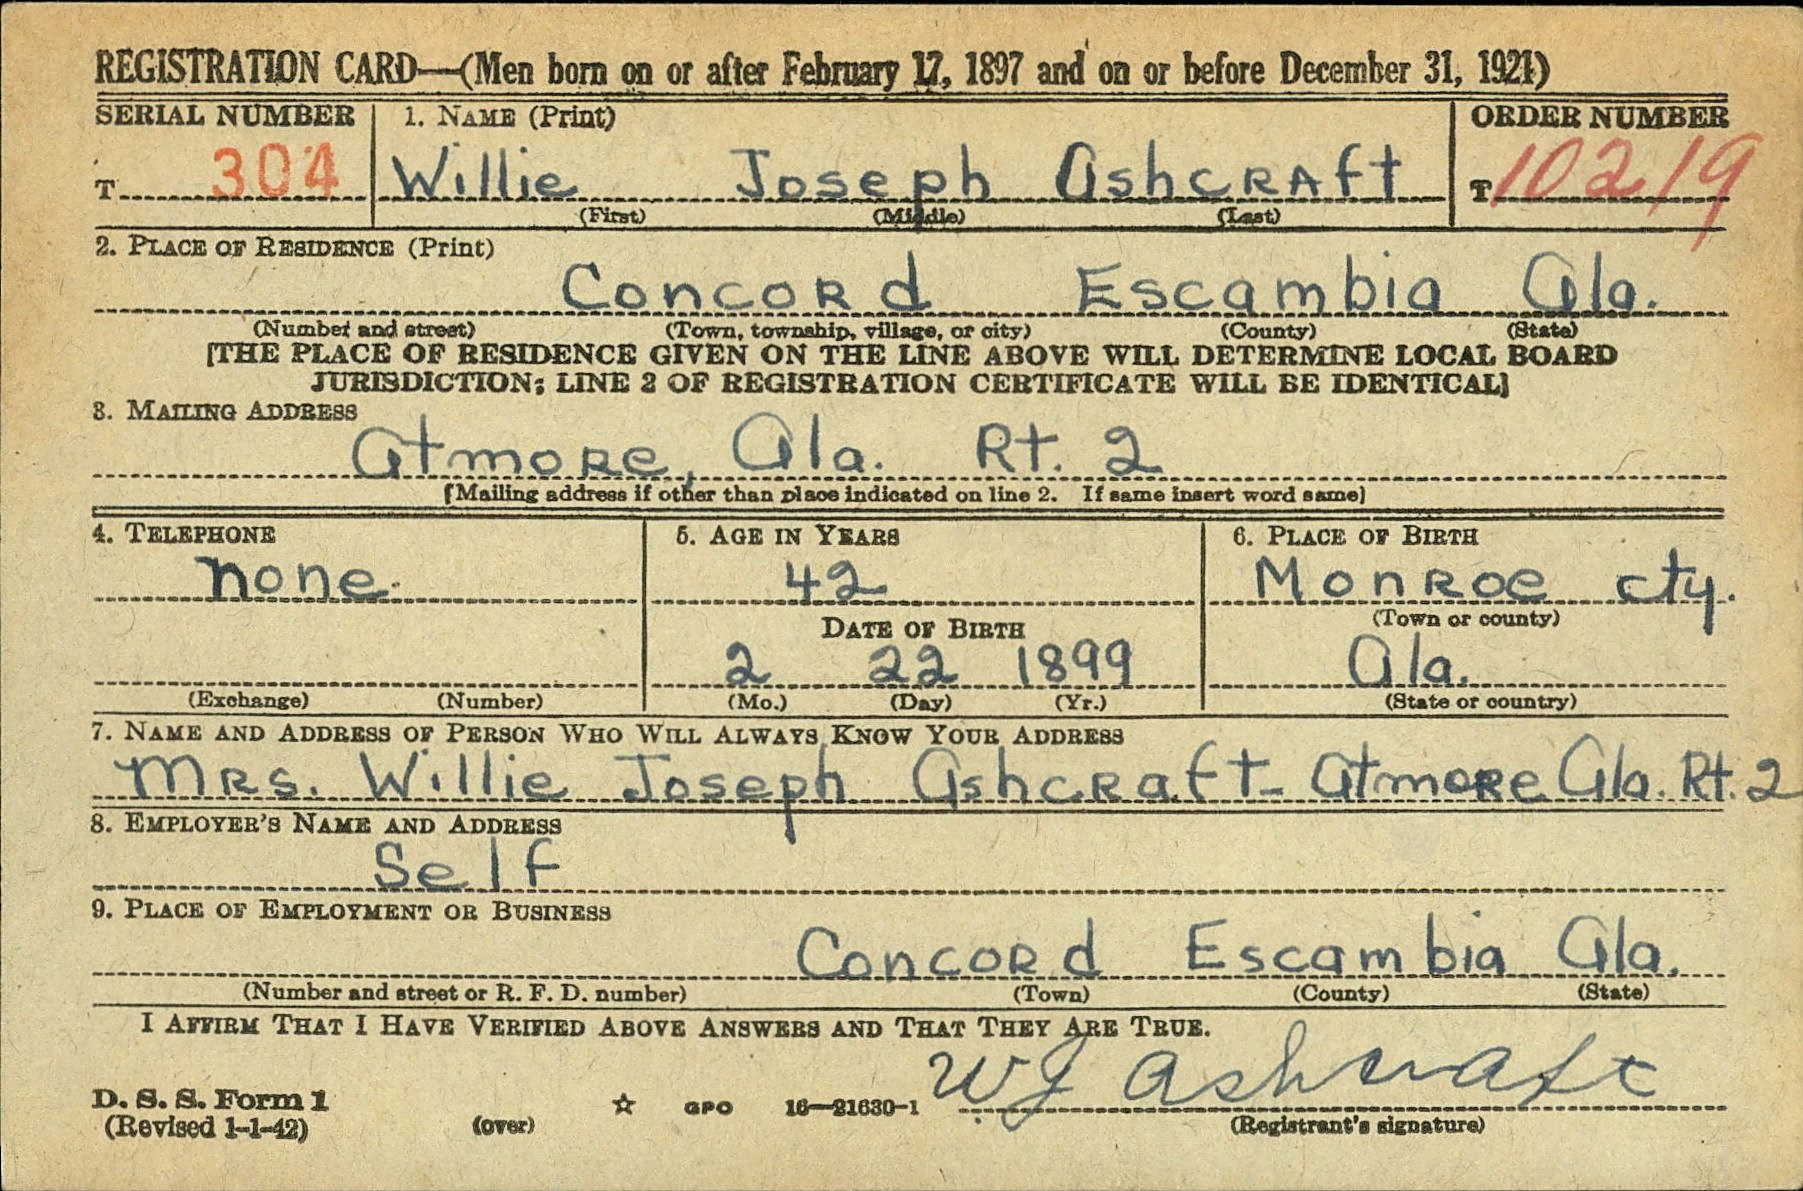 REGISTRATION CARD—(Men born on or after February 17, 1897 and on or before December 31, 1921)
SERIAL NUMBER 1. NAME (Print) ORDER NUMBER
T 304 Willie Joseph Ashcraft T 10219
(First) (Middle) (Last)
2. PLACE OF RESIDENCE (Print)
Concord Escambia Ala.
(Number and street) (Town, township, village, or city) (County) (State)
[THE PLACE OF RESIDENCE GIVEN ON THE LINE ABOVE WILL DETERMINE LOCAL BOARD
JURISDICTION; LINE 2 OF REGISTRATION CERTIFICATE WILL BE IDENTICAL]
3. MAILING ADDRESS
Atmore, Ala. Rt. 2
[Mailing address if other than place indicated on line 2. If same insert word same]
4. TELEPHONE 5. AGE IN YEARS 6. PLACE OF BIRTH
none. 42 Monroe cty.
DATE OF BIRTH (Town or county)
2 22 1899 Ala.
(Exchange) (Number) (Mo.) (Day) (Yr.) (State or country)
7. NAME AND ADDRESS OF PERSON WHO WILL ALWAYS KNOW YOUR ADDRESS
Mrs. Willie Joseph Ashcraft - Atmore Ala. Rt. 2
8. EMPLOYER'S NAME AND ADDRESS
Self
9. PLACE OF EMPLOYMENT OR BUSINESS
Concord Escambia Ala.
(Number and street or R. F. D. number) (Town) (County) (State)
I AFFIRM THAT I HAVE VERIFIED ABOVE ANSWERS AND THAT THEY ARE TRUE.
W J Ashcraft
D. S. S. Form 1
(Revised 1-1-42) (over) ☆ GPO 16—21630-1 (Registrant's signature)